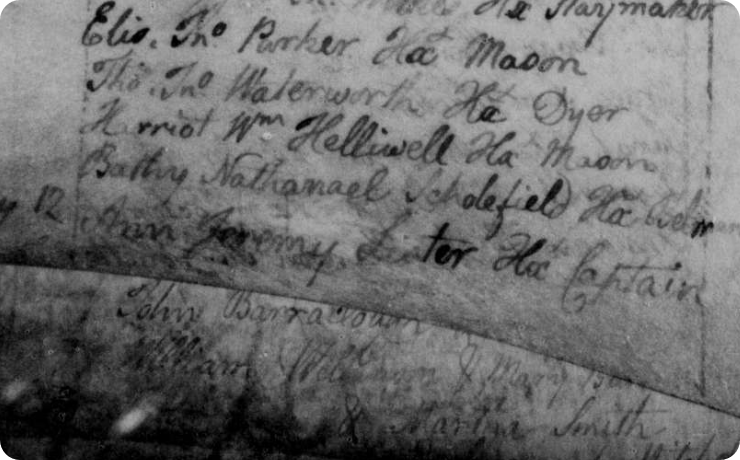 Hx Haymaker
Eliz. Jno Parker Hxt Mason
Tho. Jno Waterworth Hx Dyer
Harriot Wm Helliwell Hxt Mason
Bathy Nathanael Scholefield Hxt
12 Ann Jeremy Lister Hxt Captain
John Barraclough
William & Mary
& Martha Smith